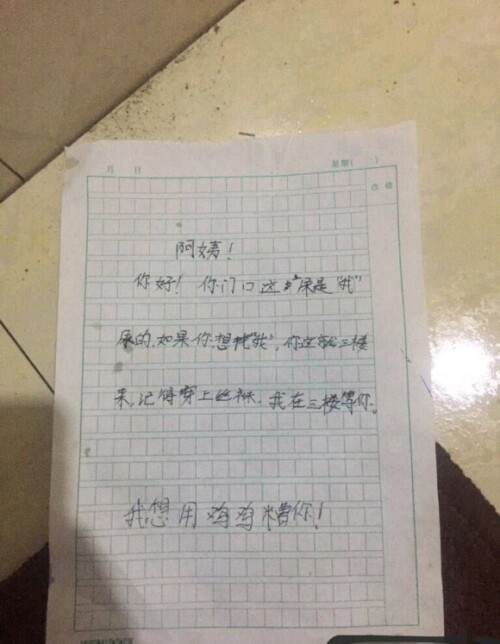 月 日 星期( )
阿姨!
你好! 你门口这尿是"我"
尿的,如果你想找"我",你这就三楼
来,记得穿上丝袜,我在三楼等你。
我想用鸡鸡糟你!